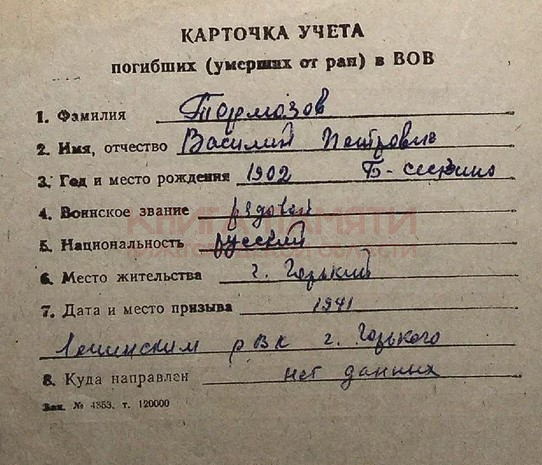 КАРТОЧКА УЧЕТА
погибших (умерших от ран) в ВОВ
1. Фамилия Тормозов
2. Имя, отчество Василий Петрович
3. Год и место рождения 1902 Б-
4. Воинское звание рядовой
5. Национальность русский
6. Место жительства г. Горький
7. Дата и место призыва 1941
Ленинским рВК г. Горького
8. Куда направлен нет данных
Зак. № 4353. т. 120000
КНИГА ПАМЯТИ
НИЖЕГОРОДСКОЙ ОБЛАСТИ